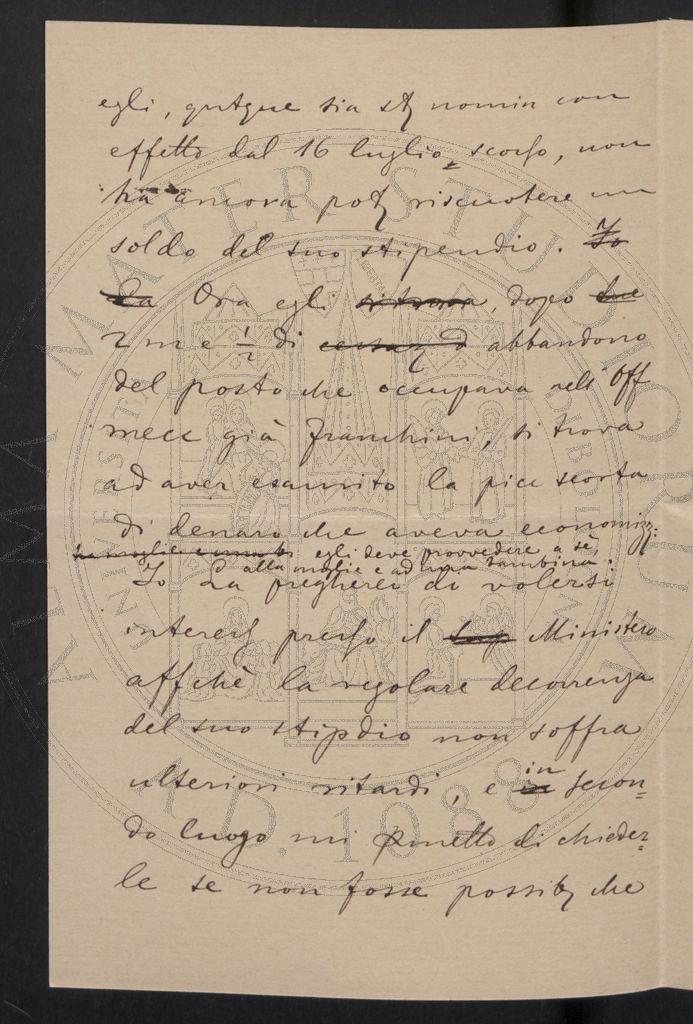 egli, qutque sia stʒ nomin con
effetto dal 16 luglio scorso, non
ha ancora potʒ riscuotere un
soldo del suo stipendio. Io
La Ora egli si trova, dopo due
2 m e 1/2 di abbandono
del posto che occupava nell' Off
mecc già Franchini, si trova
ad aver esaurito la picc scorta
di denaro che aveva economizz:
egli deve provvedere a sè,
alla moglie e ad una bambina.
Io La pregherei di volersi
interess presso il Ministero
affchè la regolare decorrenza
del suo stipdio non soffra
ulteriori ritardi, e in secon=
do luogo mi pmetto di chieder=
le se non fosse possibʒ che
ALMA MATER STUDIORUM
UNIVERSITÀ DI BOLOGNA
A.D. 1088